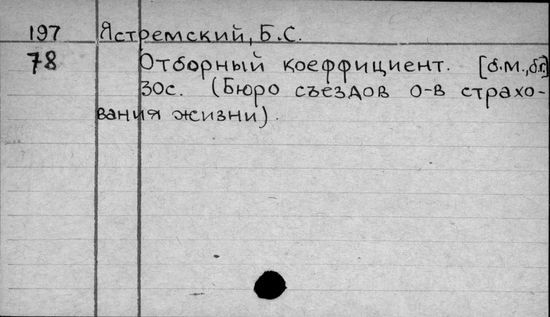 197 Ястремский, Б.С.
78 Отборный коеффициент. [б.м., б.г.]
30с. (Бюро съездов о-в страхо-
вания жизни).